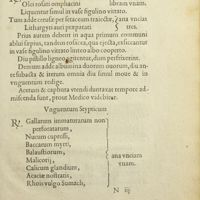 Olei rosati omphacini libram vnam.
Liquentur simul in vase figulino vitrato.
Tum adde cerusæ per setaceum traiectæ, ana vncias
Lithargyri auri præparati tres.
Prius autem debent in aqua primum communi
ablui sæpius, tandem rosacea, qua eiecta, exsiccantur
in vase figulino vitrato linteo albo cooperto.
Diu pistillo ligneo agitentur, dum perfrixerint.
Demum adde albumina duorum ouorum, diu an
tea subacta & iterum omnia diu simul mota & in
vnguentum redige.
Acetum & caphura vtendi duntaxat tempore ad-
miscenda sunt, prout Medico videbitur.
Vnguentum Stypticum
℞. Gallarum immaturarum non
perforatarum,
Nucum cupressi,
Baccarum myrti,
Balaustiorum,
Malicorij,
Calicum glandium,
Acaciæ nostratis,
Rhois vulgo Sumach,
ana vnciam
vnam.
N iij